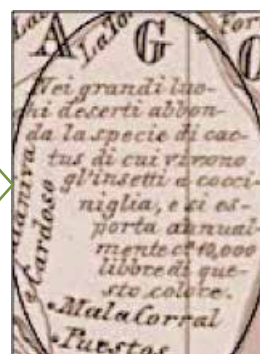 A G O
Nei grandi luo-
hi deserti abbon-
da la specie di cac-
tus di cui vivono
gl'insetti a cocci-
niglia, e si es-
porta annual-
mente c.ª 10,000
libbre di que-
sto colore.
Mala Corral
Puestos
Cardoso